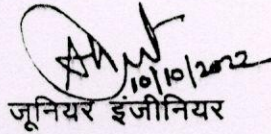 10/10/2022
जूनियर इंजीनियर